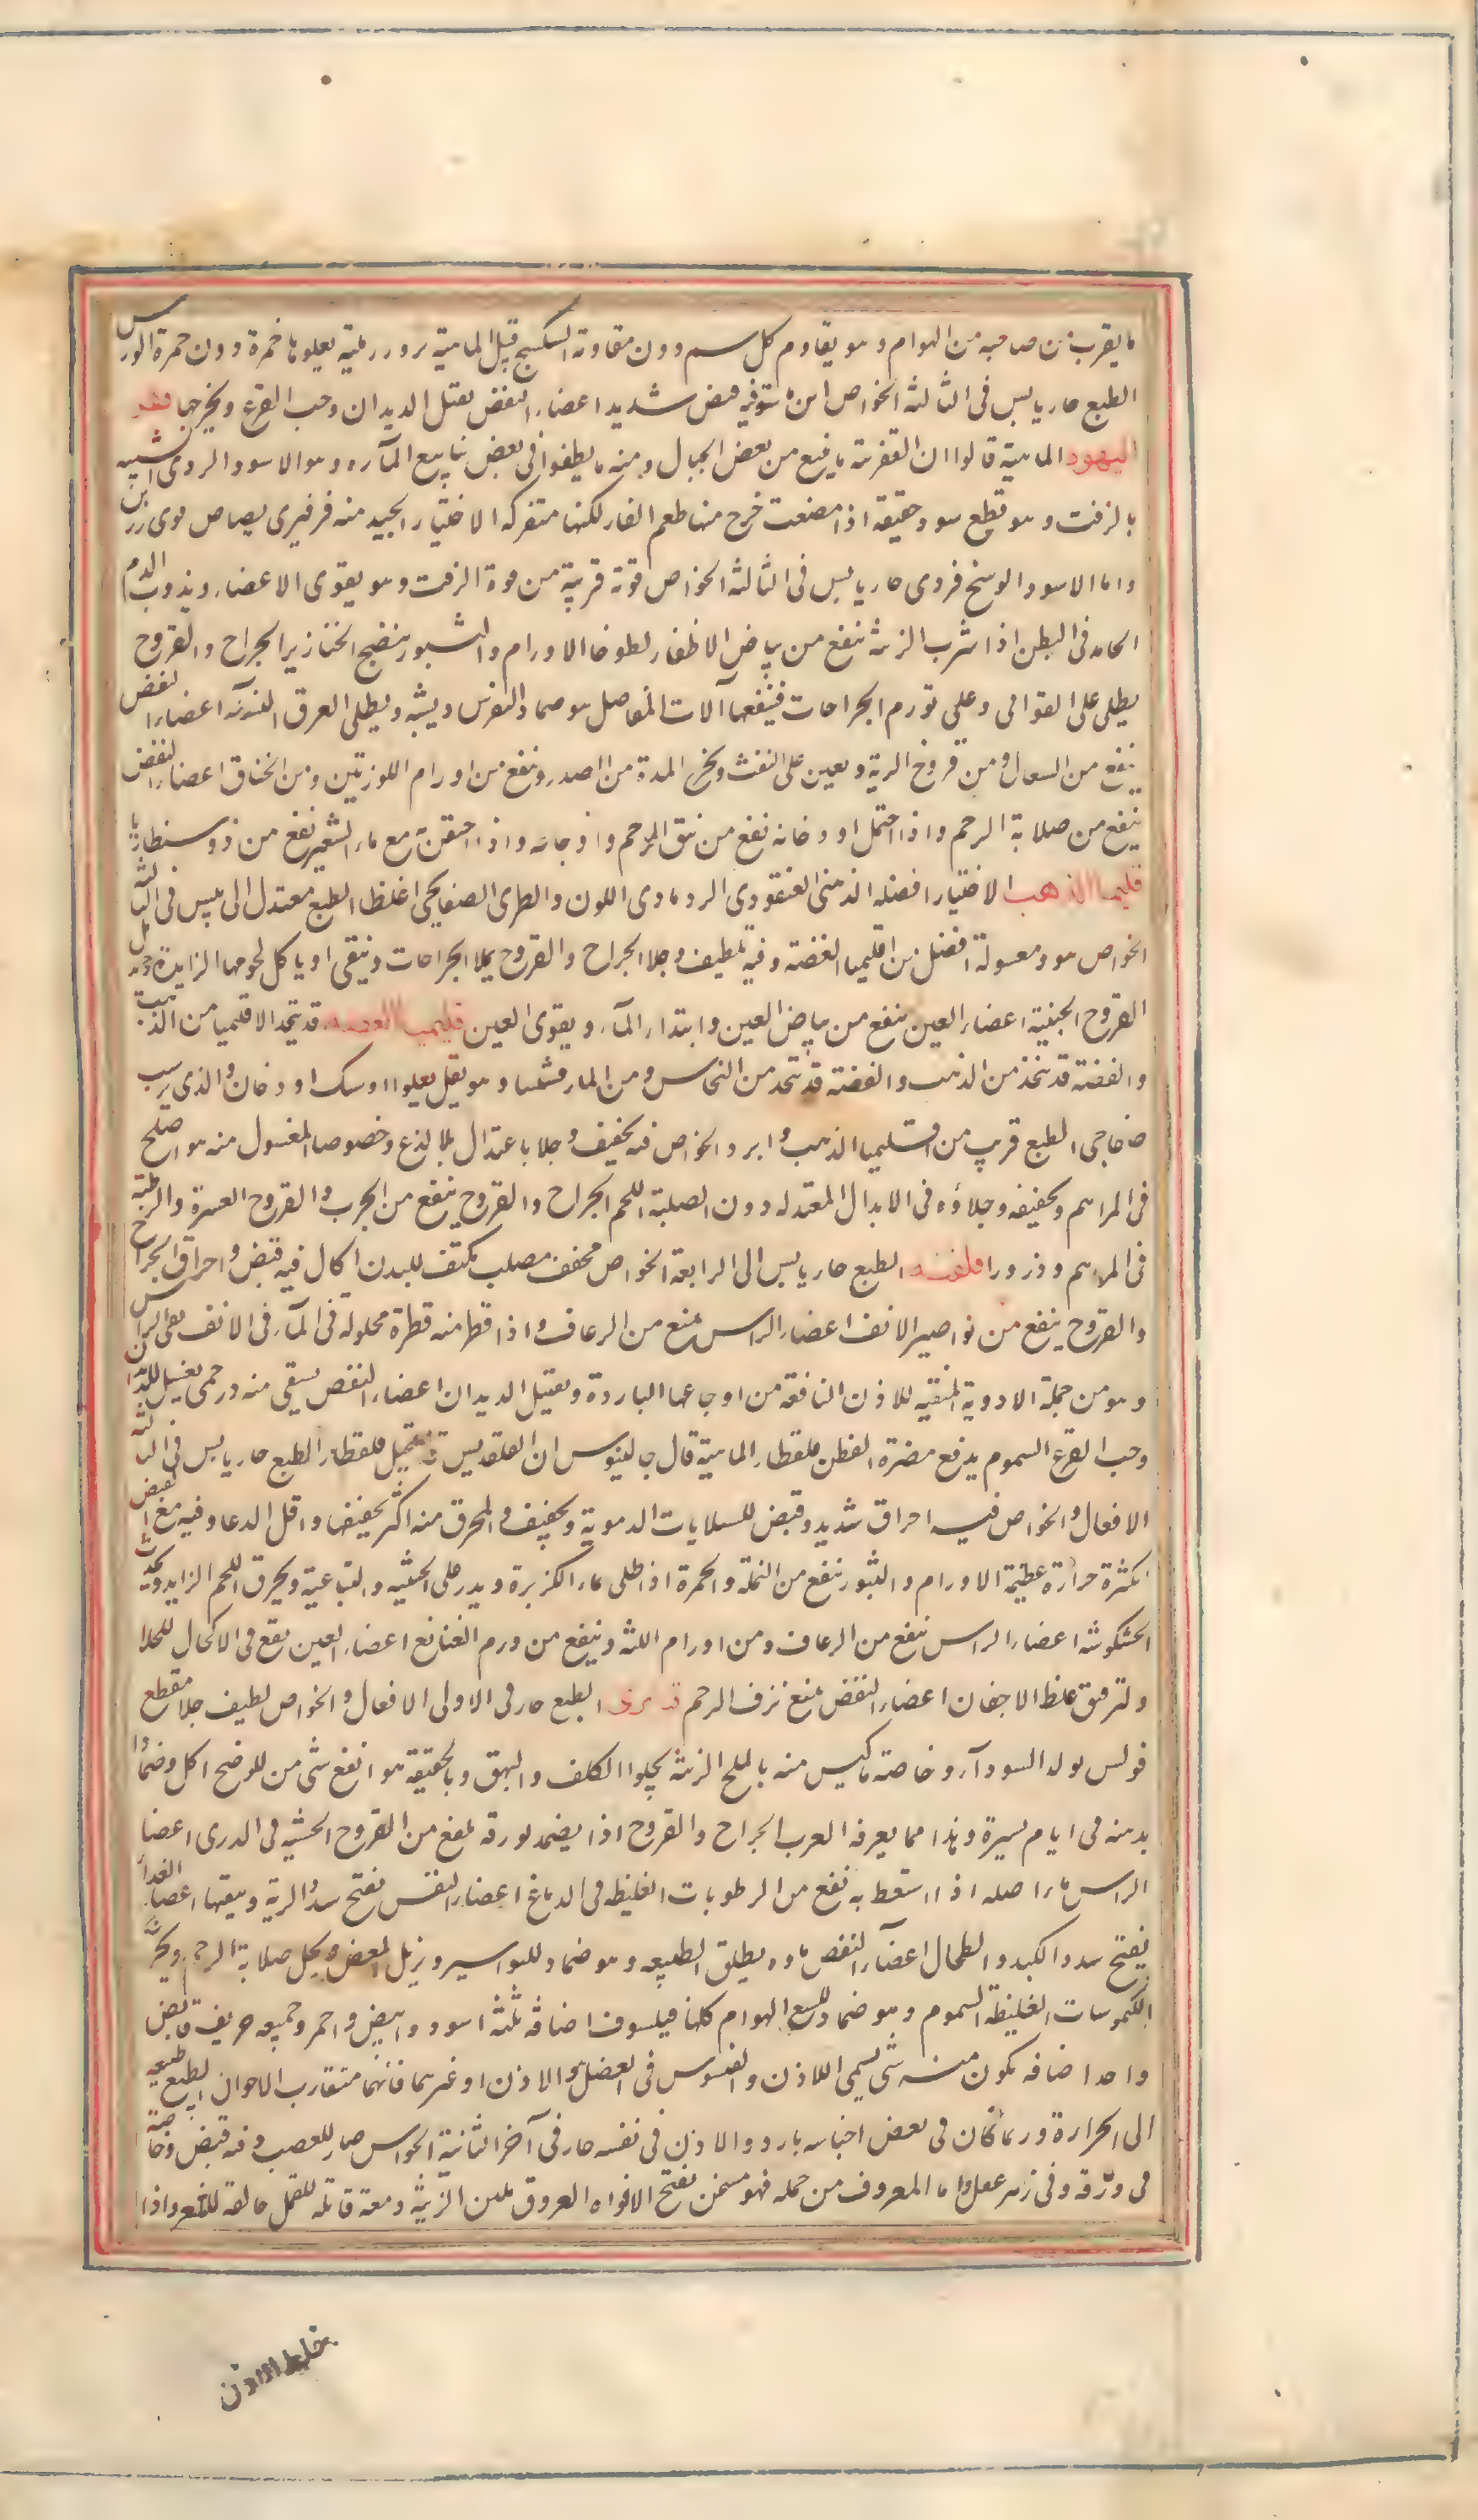 ما يقرب من صاحبه من الهوام وهو يقاوم كل سم دون مقاومة السكبينج قنبيل الماهية بزور رملية يعلوها حمرة دون حمرة الورس
الطبع حار يابس فى الثالثة الخواص فيه قبض شديد اعضاء النفض يقتل الديدان وحب القرع ويخرجها قفر
اليهود الماهية قالوا ان القفر منه ما ينبع من بعض الجبال ومنه ما يطفوا فى بعض ينابيع المآء وهو الاسود الردى الشبيه
بالزفت وهو قطع سود حقيقة اذا مضغت خرج منها طعم القار لكنها متفركه الاختيار الجيد منه فرفيرى بصاص قوى رزين
واما الاسود الوسخ فردى حار يابس فى الثالثة الخواص قوته قريبة من قوة الزفت وهو يقوى الاعضاء ويذوب الدم
الجامد فى البطن اذا شرب الزينة ينفع من بياض الاظفار لطوخا الاورام والبثور ينضج الخنازير الجراح والقروح
يطلى على القوابى وعلى تورم الجراحات فينفعها آلات المفاصل هو ضماد النقرس ويطلى العرق النسآء اعضاء النفض
ينفع من السعال ومن قروح الرية ويعين على النفث ويخرج المدة من الصدر وينفع من اورام اللوزتين ومن الخناق اعضاء النفض
ينفع من صلابة الرحم واذا احتمل او دخانه نفع من نتو الرحم واوجاعه واذا احتقن به مع ماء الشعير نفع من ذوسنطاريا
قليميا الذهب الاختيار افضله الذهنى العنقودى الرمادى اللون والطرى الصفايحى اغلظ الطبع معتدل الى يبس فى الثالثة
الخواص هو ومغسولة افضل من اقليميا الفضة وفيه تلطيف وجلا الجراح والقروح يملا الجراحات وينقى او ياكل لحومها الزايدة ويدمل
القروح الخبيثة اعضاء العين ينفع من بياض العين وابتداء المآء ويقوى العين قليميا الفضه قد يتخذ الاقليميا من الذهب
والفضة قد تتخذ من الذهب والفضة قد تتخذ من النحاس ومن المارقشيثا وهو ثقل يعلوا او سبك او دخان والذى يرسب
صفايحى الطبع قريب من اقليميا الذهب وابرد الخواص فيه تجفيف وجلا باعتدال بلا لذع وخصوصا المغسول منه هو اصلح
فى المراهم وتجفيفه وجلاؤه فى الابدان المعتدله دون الصلبة اللحم الجراح والقروح ينفع من الجرب والقروح العسرة والرطبة
فى المراهم وذرورا قلقند الطبع حار يابس الى الرابعة الخواص مجفف مصلب مكثف للبدن اكال فيه قبض واحراق الجراح
والقروح ينفع من نواصير الانف اعضاء الراس يمنع من الرعاف واذا قطر منه قطرة محلولة فى المآء فى الانف نقى الراس
وهو من جملة الادوية المنقيه للاذن النافعة من اوجاعها الباردة ويقتل الديدان اعضاء النفض يسقى منه درخمى بعسل للديدان
وحب القرع السموم يدفع مضرة الفطر قلقطار الماهية قال جالينوس ان القلقديس قد يستحيل قلقطارا الطبع حار يابس فى الثالثة
الافعال والخواص فيه احراق شديد وقبض للسيلانات الدموية وتجفيف والمحرق منه اكثر تجفيفا واقل لدغا وفيه مع القبض
بكثرة حرارة عظيمة الاورام والبثور ينفع من النملة والحمرة اذا طلى بماء الكزبرة ويذر على الخبيثه والساعية ويحرق اللحم الزايد ويحدث
الخشكريشه اعضاء الراس ينفع من الرعاف ومن اورام اللثه وينفع من ورم النغانغ اعضاء العين يقع فى الاكحال للجلا
ولترقيق غلظ الاجفان اعضاء النفض يمنع نزف الرحم قنابرى الطبع حار فى الاولى الافعال والخواص لطيف جلا مقطع
فولس يولد السودآء وخاصة ما كبس منه بالملح الزينة يجلوا الكلف والبهق وبالحقيقة هو انفع شى من للوضح اكلا وضمادا
يذهبه فى ايام يسيرة وهذا مما يعرفه العرب الجراح والقروح اذا يضمد بورقه نفع من القروح الخبيثه فى الثدى اعضا
الراس ماء اصله اذا استعط به نفع من الرطوبات الغليظه فى الدماغ اعضاء النفس يفتح سدد الرية وينقيها اعضا الغذا
يفتح سدد الكبد والطحال اعضآء النفض ماءه يطلق الطبيعه وهو ضماد للبواسير ويزيل المغص ويحل صلابة الرحم ويخرج
الكيموسات الغليظة السموم وهو ضماد للسع الهوام كلها فيلسوف اصنافه ثلثة اسود وابيض واحمر وجميعه حريف قابض
واحد اصنافه يكون منه شى يسمى اللاذن والقسوس فى الفضل هو الاذن او غيرهما فانهما متقارب الاحوال الطبع طبيعيه
الى الحرارة وربما كان فى بعض اجناسه بارد واللاذن فى نفسه حار فى آخر الثانية الخواص ضار للعصب وفيه قبض وخاصة
فى ورقه وفى زهره عفل واما المعروف من جمله فهو مسخن يفتح الافواه العروق ملين الزينة دمعة قاتله للقمل حالقة للشعر واذا
خلط اللاذن